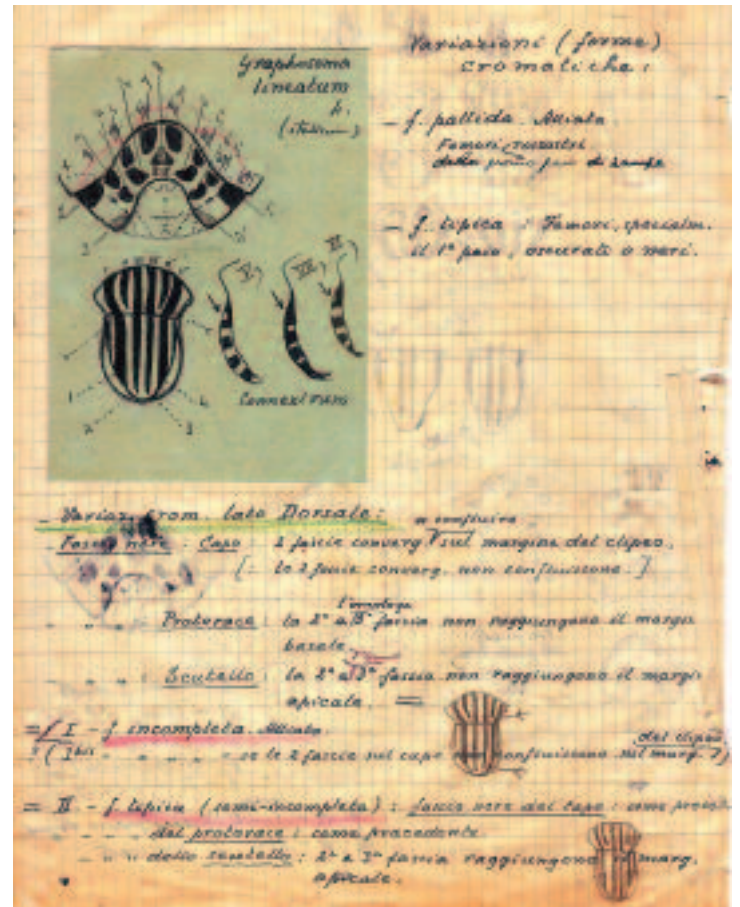 Graphosoma
lineatum
L.
(italicum)
V
VI
VII
Connexivum
1 2 3 4
Variazioni (forme)
cromatiche:
- f. pallida. Alliata
Femori rossastri
di zampe
- f. tipica : Femori, specialm.
il 1° paio, oscurati o neri.
- Variaz. crom. lato Dorsale:
e confluire
Fasce nere : Capo : 2 fascie converg. sul margine del clipeo,
[: le 2 fascie converg. non confluiscono.]
" " " Protorace : la 2ª a 5ª fascia non raggiungono il margi
basale
" " " Scutello : la 2ª e 3ª fascia non raggiungono il margi
apicale. =
= I - f. incompleta. Alliata
del clipeo
? ( I bis - " " " - se le 2 fascie sul capo non confluiscono sul marg. ?)
= II - f. tipica (semi-incompleta) : fascie nere del capo : come preced.
- " " del protorace : come precedente
- " " dello scutello : 2ª e 3ª fascia raggiungono il marg.
apicale.